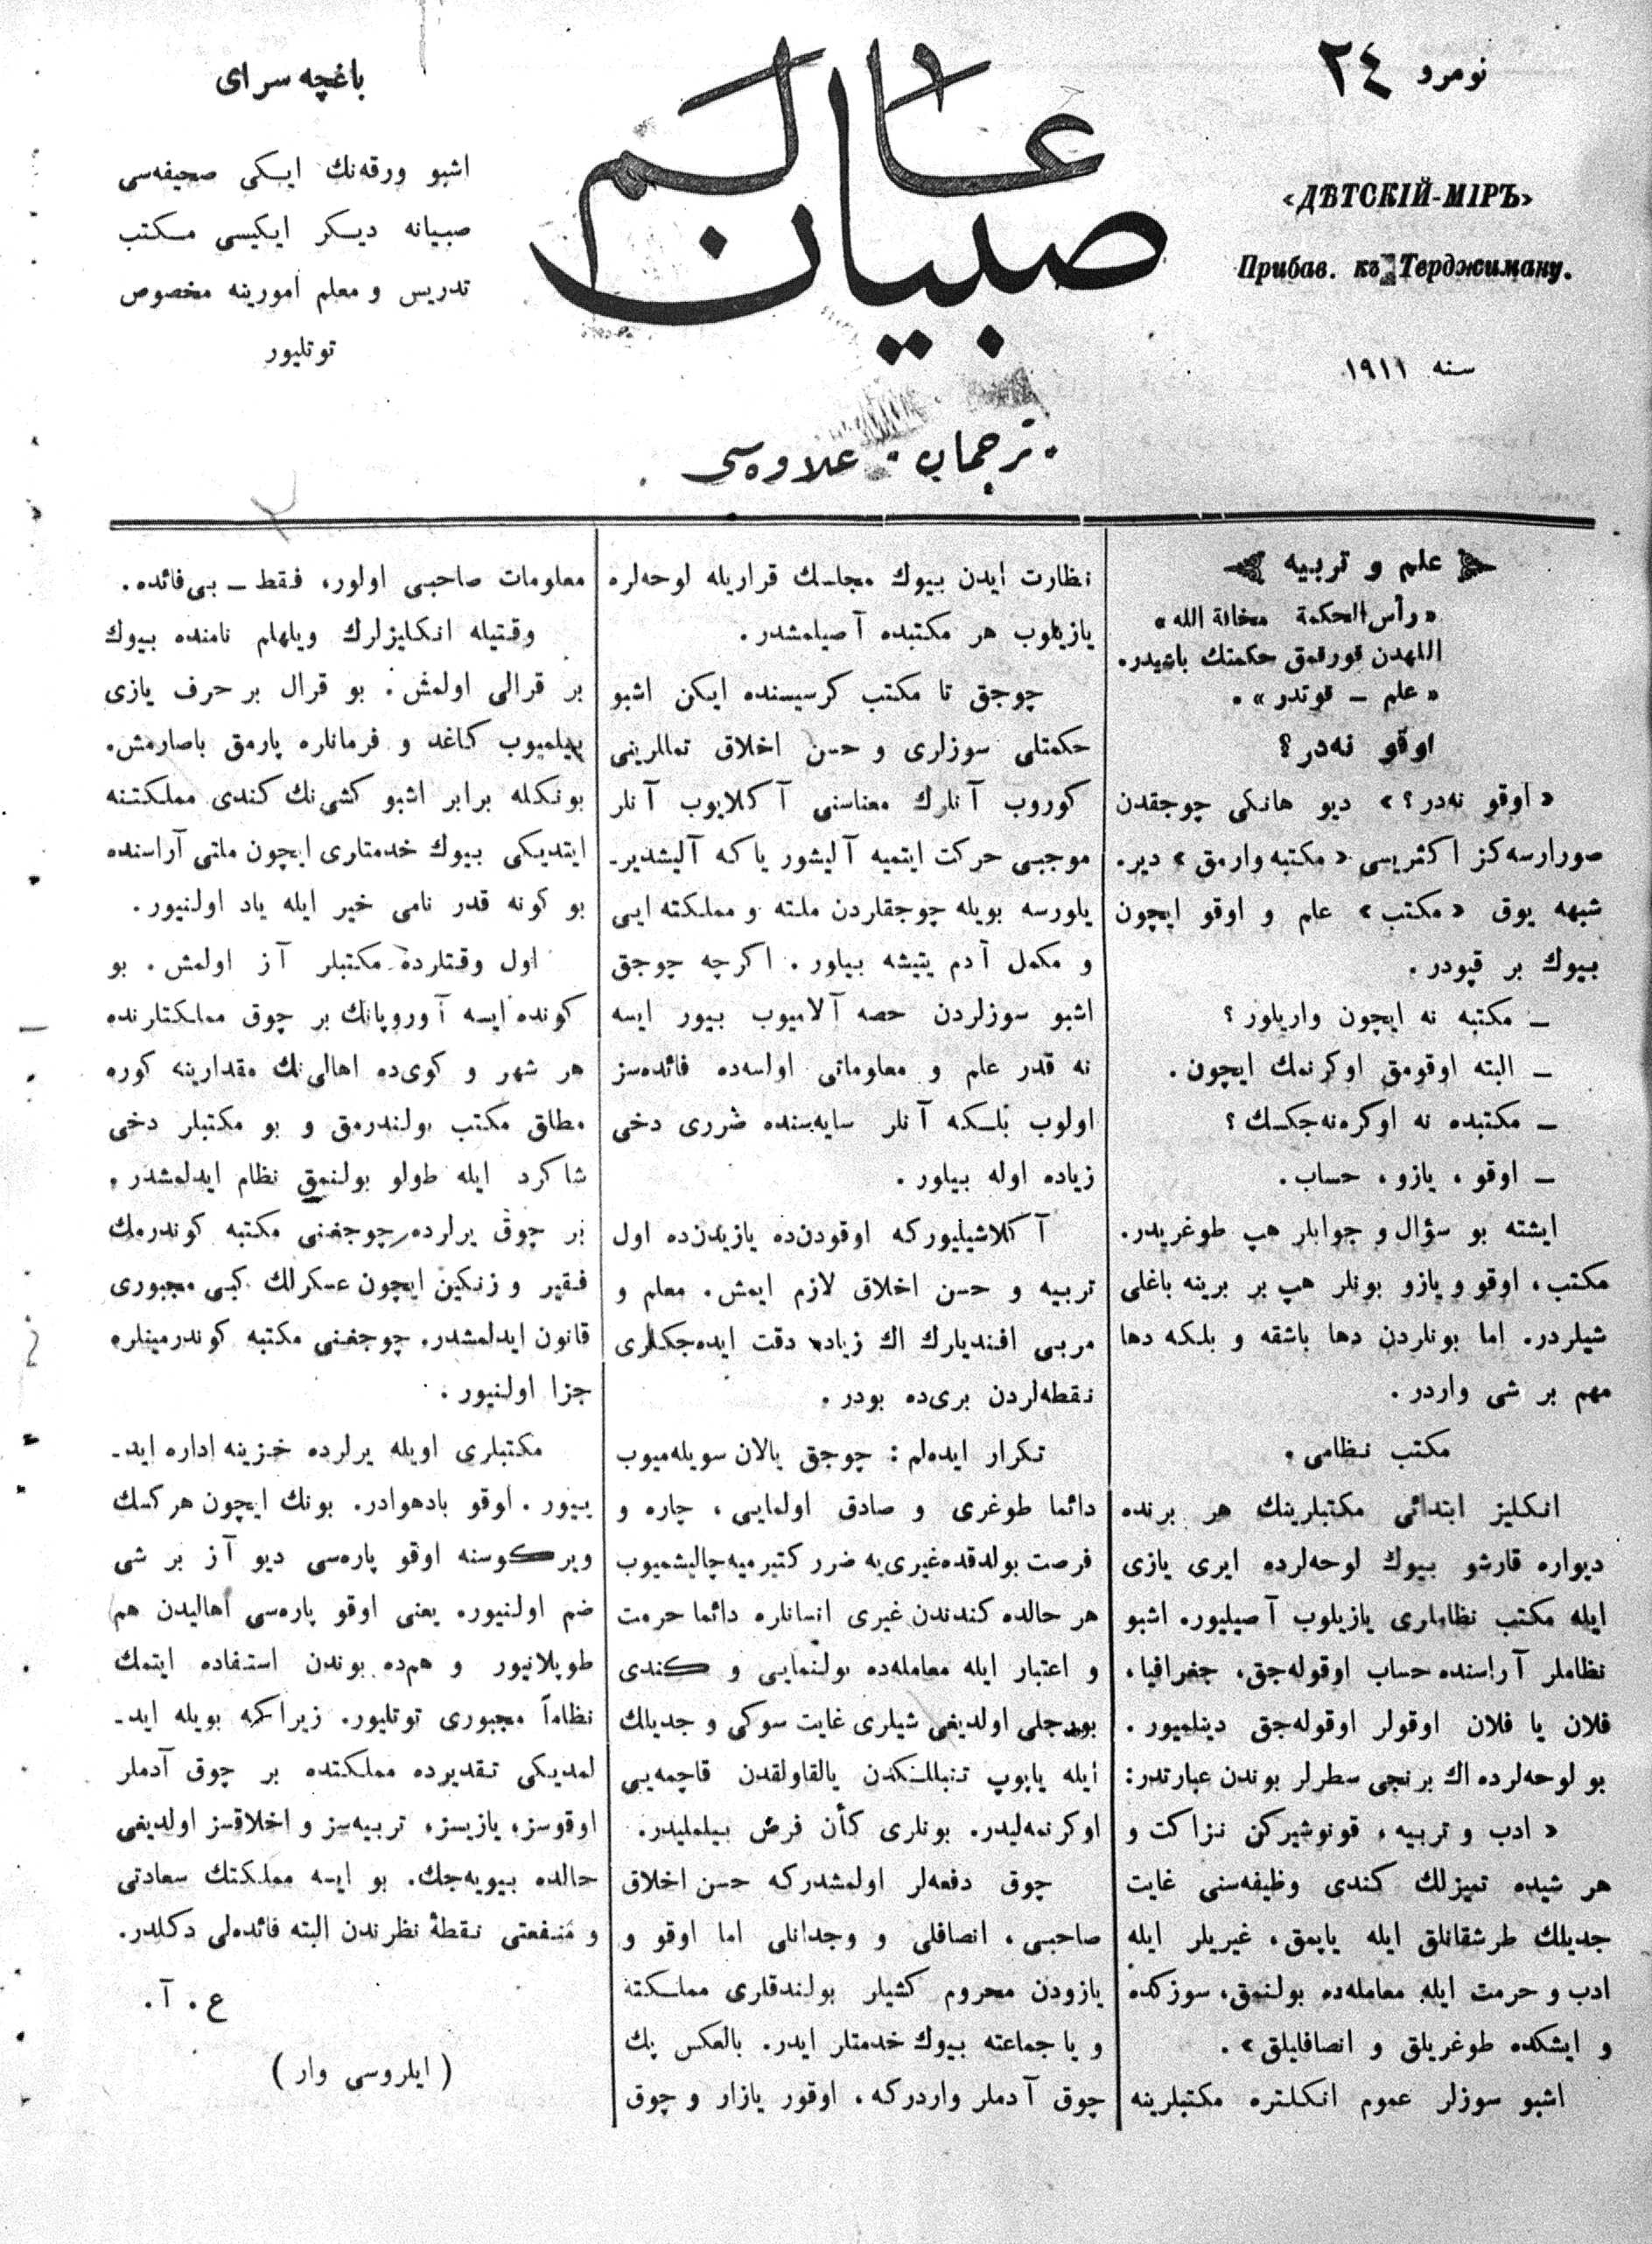 نومرو ٢٤
«ДѢТСКІЙ-МІРЪ»
Прибав. къ Терджиману.
سنه ١٩١١
عالم
صبيان
ترجمان علاوه‌سی
باغچه سرای
اشبو ورقه‌نك ایکی صحیفه‌سی
صبیانه دیکر ایکیسی مکتب
تدریس و معلم امورینه مخصوص
توتلیور
علم و تربیه
«رأس الحکمة مخافة الله»
اللهدن قورقمق حکمتك باشیدر.
«علم — قوتدر».
اوقو نه‌در؟
«اوقو نه‌در؟» دیو هانکی چوجقدن
صورارسه‌کز اکثریسی «مکتبه وارمق» دیر.
شبهه یوق «مکتب» علم و اوقو ایچون
بیوك بر قپودر.
— مکتبه نه ایچون واریلور؟
— البته اوقومق اوکرنمك ایچون.
— مکتبده نه اوکره‌نه‌جکسك؟
— اوقو، یازو، حساب.
ایشته بو سؤال و جوابلر هپ طوغریدر.
مکتب، اوقو و یازو بونلر هپ بر برینه باغلی
شیلردر. اما بونلردن دها باشقه و بلکه دها
مهم بر شی واردر.
مکتب نظامی.
انکلیز ابتدائی مکتبلرینك هر برنده
دیواره قارشو بیوك لوحه‌لرده ایری یازی
ایله مکتب نظاملری یازیلوب آصیلیور. اشبو
نظاملر آراسنده حساب اوقوله‌جق، جغرافیا،
فلان یا فلان اوقولر اوقوله‌جق دینلمیور.
بو لوحه‌لرده اك برنجی سطرلر بوندن عبارتدر:
«ادب و تربیه، قونوشیرکن نزاکت و
هر شیده تمیزلك کندی وظیفه‌سنی غایت
جدیلك طرشقانلق ایله یاپمق، غیریلر ایله
ادب و حرمت ایله معامله‌ده بولنمق، سوزکده
و ایشکده طوغریلق و انصافلیلق».
اشبو سوزلر عموم انکلتره مکتبلرینه
نظارت ایدن بیوك مجلسك قراریله لوحه‌لره
یازیلوب هر مکتبده آصیلمشدر.
چوجق تا مکتب کرسیسنده ایکن اشبو
حکمتلی سوزلری و حسن اخلاق تمللرینی
کوروب آنلرك معناسنی آکلایوب آنلر
موجبی حرکت ایتمیه آلیشور یاکه آلیشدیر-
یلورسه بویله چوجقلردن ملته و مملکته ایی
و مکمل آدم یتیشه بیلور. اکرچه چوجق
اشبو سوزلردن حصه آلامیوب بیور ایسه
نه قدر علم و معلوماتی اولسه‌ده فائده‌سز
اولوب بلکه آنلر سایه‌سنده ضرری دخی
زیاده اوله بیلور.
آکلاشیلیورکه اوقودن‌ده یازیدن‌ده اول
تربیه و حسن اخلاق لازم ایمش. معلم و
مربی افندیلرك اك زیاده دقت ایده‌جکلری
نقطه‌لردن بری‌ده بودر.
تکرار ایده‌لم: چوجق یالان سویله‌میوب
دائما طوغری و صادق اولمایی، چاره و
فرصت بولدقده غیری‌یه ضرر کتیرمیه چالیشمیوب
هر حالده کندندن غیری انسانلره دائما حرمت
و اعتبار ایله معامله‌ده بولنمایی و کندی
بورجلی اولدیغی شیلری غایت سوکی و جدیلك
ایله یاپوب تنبللکدن یالقاولقدن قاچمه‌یی
اوکرنمه‌لیدر. بونلری کأن فرض بیلملیدر.
چوق دفعه‌لر اولمشدرکه حسن اخلاق
صاحبی، انصافلی و وجدانلی اما اوقو و
یازودن محروم کشیلر بولندقلری مملکته
و یا جماعته بیوك خدمتلر ایدر. بالعکس پك
چوق آدملر واردرکه، اوقور یازار و چوق
معلومات صاحبی اولور، فقط — بی‌فائده.
وقتیله انکلیزلرك ویلهلم نامنده بیوك
بر قرالی اولمش. بو قرال بر حرف یازی
بیلمیوب کاغد و فرمانلره پارمق باصارمش.
بونکله برابر اشبو کشی‌نك کندی مملکتنه
ایتدیکی بیوك خدمتلری ایچون ملتی آراسنده
بو کونه قدر نامی خیر ایله یاد اولنیور.
اول وقتلرده مکتبلر آز اولمش. بو
کونده ایسه آوروپانك بر چوق مملکتلرنده
هر شهر و کوی‌ده اهالی‌نك مقدارینه کوره
مطلق مکتب بولندرمق و بو مکتبلر دخی
شاکرد ایله طولو بولنمق نظام ایدلمشدر.
بر چوق یرلرده چوجغنی مکتبه کوندرمك
فقیر و زنکین ایچون عسکرلك کبی مجبوری
قانون ایدلمشدر. چوجغنی مکتبه کوندرمینلره
جزا اولنیور.
مکتبلری اویله یرلرده خزینه اداره اید-
ییور. اوقو بادهوادر. بونك ایچون هرکسك
ویرکوسنه اوقو پاره‌سی دیو آز بر شی
ضم اولنیور. یعنی اوقو پاره‌سی اهالیدن هم
طوپلانیور و هم‌ده بوندن استفاده ایتمك
نظاماً مجبوری توتلیور. زیراکه بویله اید-
لمدیکی تقدیرده مملکتده بر چوق آدملر
اوقوسز، یازیسز، تربیه‌سز و اخلاقسز اولدیغی
حالده بیویه‌جك. بو ایسه مملکتك سعادتی
و منفعتی نقطۀ نظرندن البته فائده‌لی دکلدر.
ع. آ.
(ایلروسی وار)